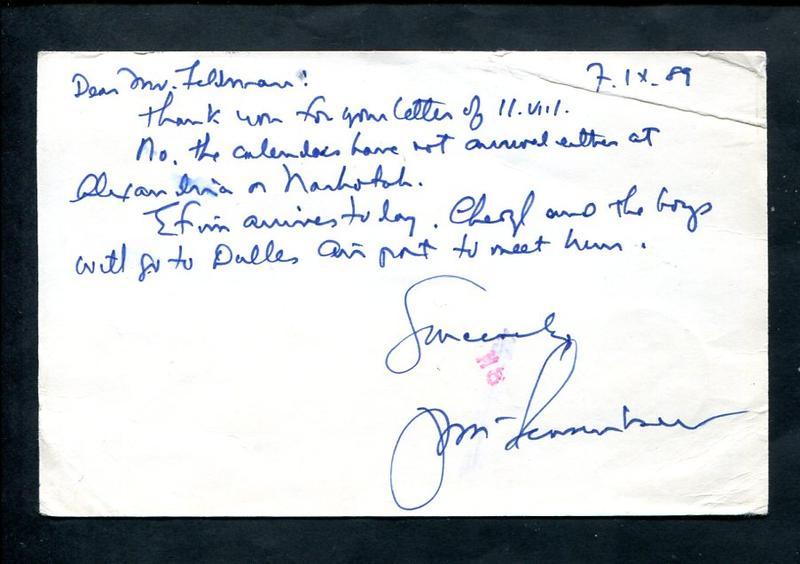 Dear Mr. Feldman! 7.IX.89
Thank you for your letter of 11.VIII.
No, the calendars have not arrived either at
Alexandria or Nashotah.
Efim arrives today. Cheryl and the boys
will go to Dulles Airport to meet him.
Sincerely,